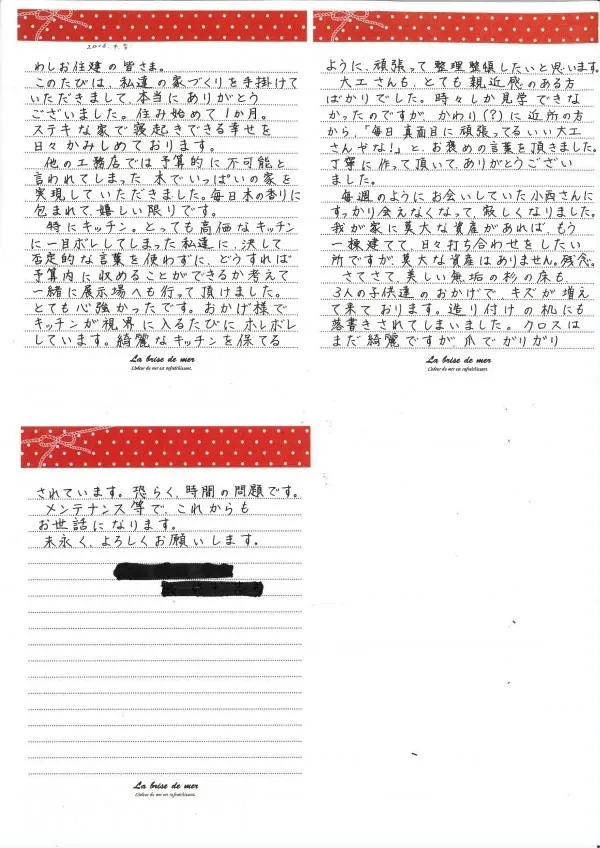 2016.9.8
わしお住建の皆さま。
このたびは、私達の家づくりを手掛けて
いただきまして、本当にありがとう
ございました。住み始めて1か月。
ステキな家で寝起きできる幸せを
日々かみしめております。
他の工務店では予算的に不可能と
言われてしまった木でいっぱいの家を
実現していただきました。毎日木の香りに
包まれて、嬉しい限りです。
特にキッチン。とっても高価なキッチン
に一目ボレしてしまった私達に、決して
否定的な言葉を使わずに、どうすれば
予算内に収めることができるか考えて
一緒に展示場へも行って頂けました。
とても心強かったです。おかげ様で
キッチンが視界に入るたびにホレボレ
しています。綺麗なキッチンを保てる
La brise de mer
L'odeur du mer est rafraîchissant.
ように、頑張って整理整頓したいと思います。
大工さんも、とても親近感のある方
ばかりでした。時々しか見学できな
かったのですが、かわり(?)に近所の方
から「毎日真面目に頑張ってるいい大工
さんやな!」と、お褒めの言葉を頂きました。
丁寧に作って頂いて、ありがとうござい
ました。
毎週のようにお会いしていた小西さんに
すっかり会えなくなって、寂しくなりました。
我が家に莫大な資産があれば、もう
一棟建てて、日々打ち合わせをしたい
所ですが、莫大な資産はありません。残念。
さてさて、美しい無垢の杉の床も、
3人の子供達のおかげで、キズが増え
て来ております。造り付けの机にも
落書きされてしまいました。クロスは
まだ綺麗ですが、爪でがりがり
La brise de mer
L'odeur du mer est rafraîchissant.
されています。恐らく、時間の問題です。
メンテナンス等で、これからも
お世話になります。
末永く、よろしくお願いします。
La brise de mer
L'odeur du mer est rafraîchissant.